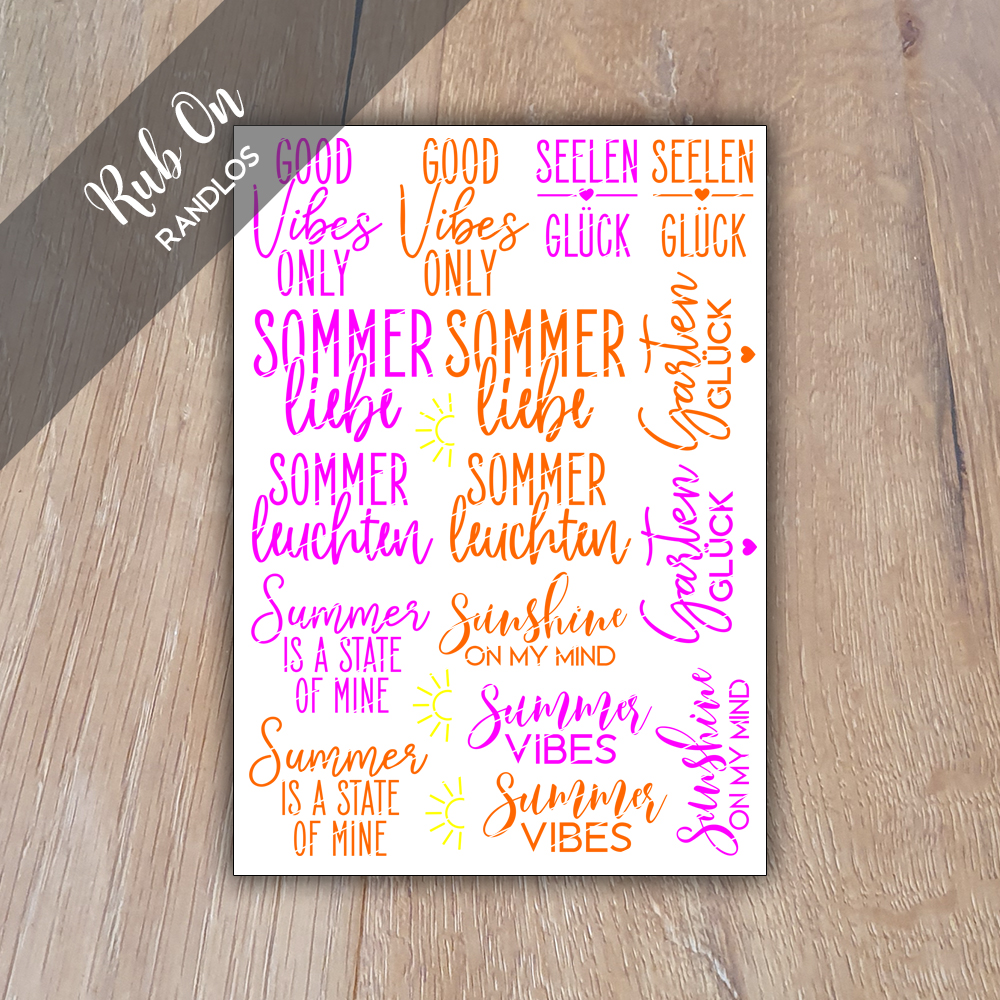 Rub On
RANDLOS
GOOD
Vibes
ONLY
GOOD
Vibes
ONLY
SEELEN
GLÜCK
SEELEN
GLÜCK
SOMMER
liebe
SOMMER
liebe
Garten
GLÜCK
SOMMER
leuchten
SOMMER
leuchten
Garten
GLÜCK
Summer
IS A STATE
OF MINE
Sunshine
ON MY MIND
Summer
VIBES
Sunshine
ON MY MIND
Summer
IS A STATE
OF MINE
Summer
VIBES